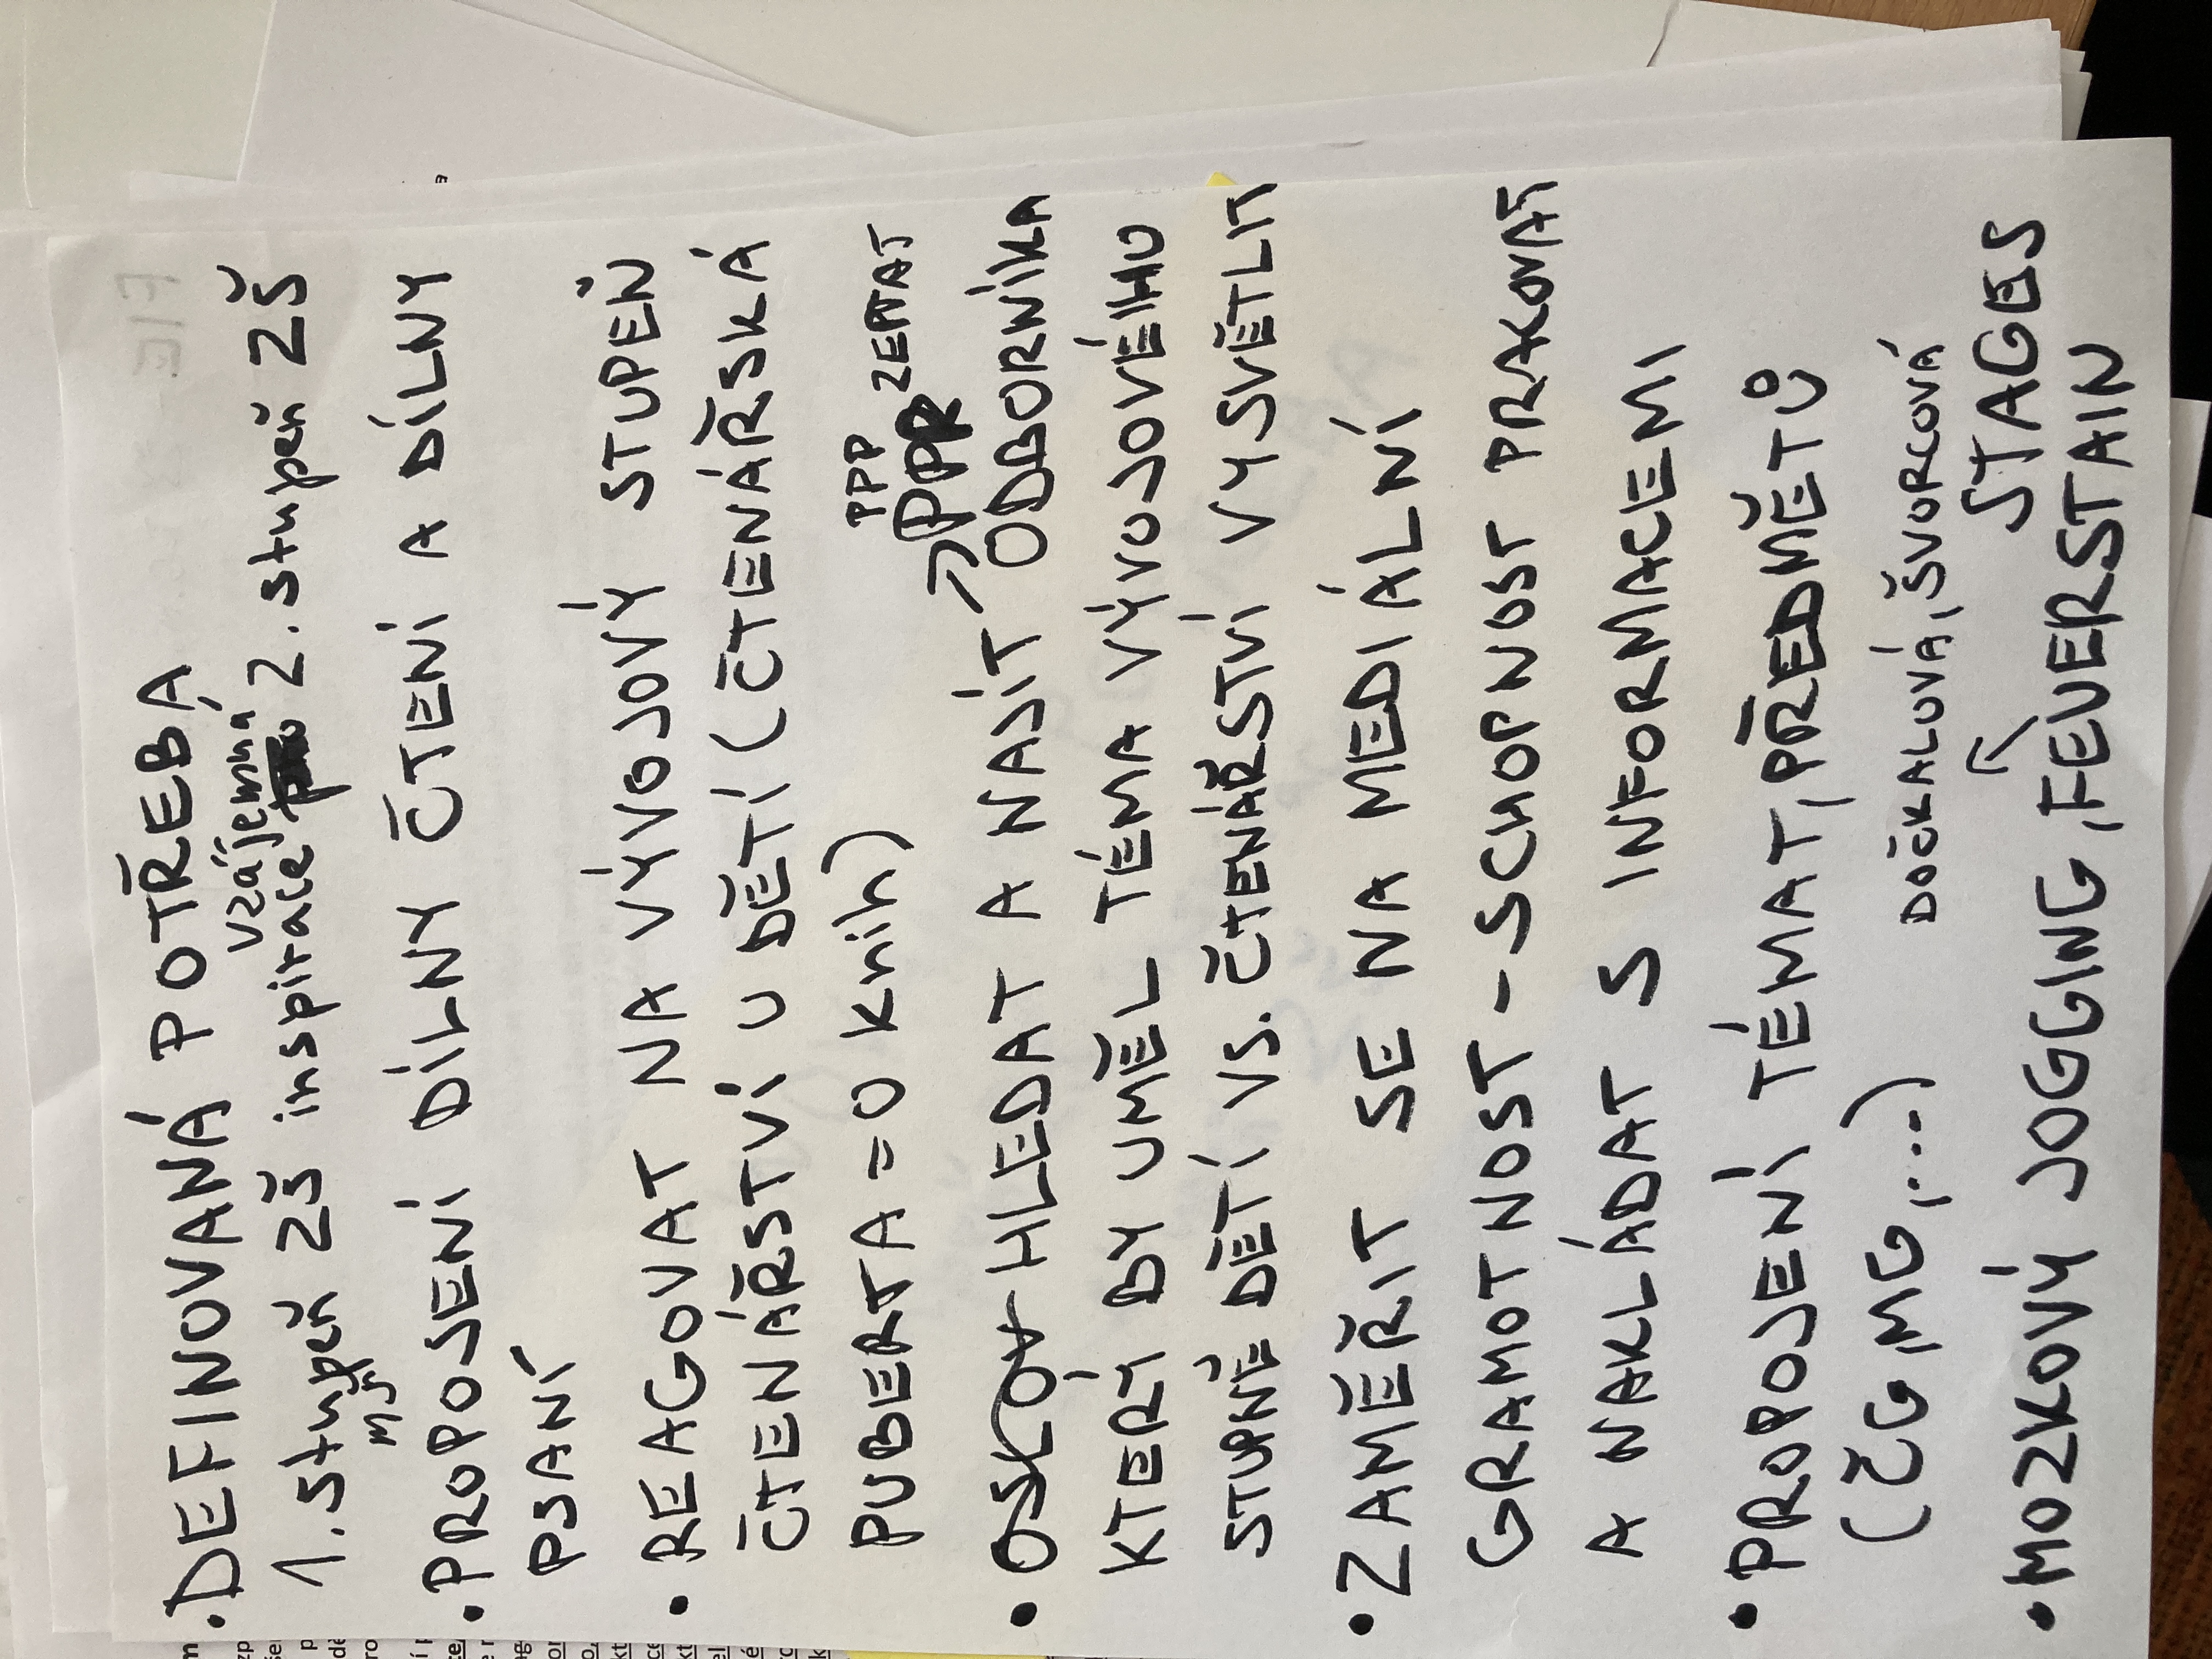 • DEFINOVANÁ POTŘEBA
vzájemná
1. stupeň ZŠ inspirace 2. stupeň ZŠ
MŠ
• PROPOJENÍ DÍLNY ČTENÍ A DÍLNY
PSANÍ
• REAGOVAT NA VÝVOJOVÝ STUPEŇ
ČTENÁŘSTVÍ U DĚTÍ (ČTENÁŘSKÁ
PUBERTA = 0 knih)
PPP ZEPTAT
• HLEDAT A NAJÍT ODBORNÍKA
KTERÝ BY UMĚL TÉMA VÝVOJOVÉHO
STUPNĚ DĚTÍ VS. ČTENÁŘSTVÍ VYSVĚTLIT
• ZAMĚŘIT SE NA MEDIÁLNÍ
GRAMOTNOST - SCHOPNOST PRACOVAT
A NAKLÁDAT S INFORMACEMI
• PROPOJENÍ TÉMAT, PŘEDMĚTŮ
(ČG, MG, ...)
DOČKALOVÁ, ŠVORCOVÁ
STAGES
• MOZKOVÝ JOGGING, FEUERSTAIN